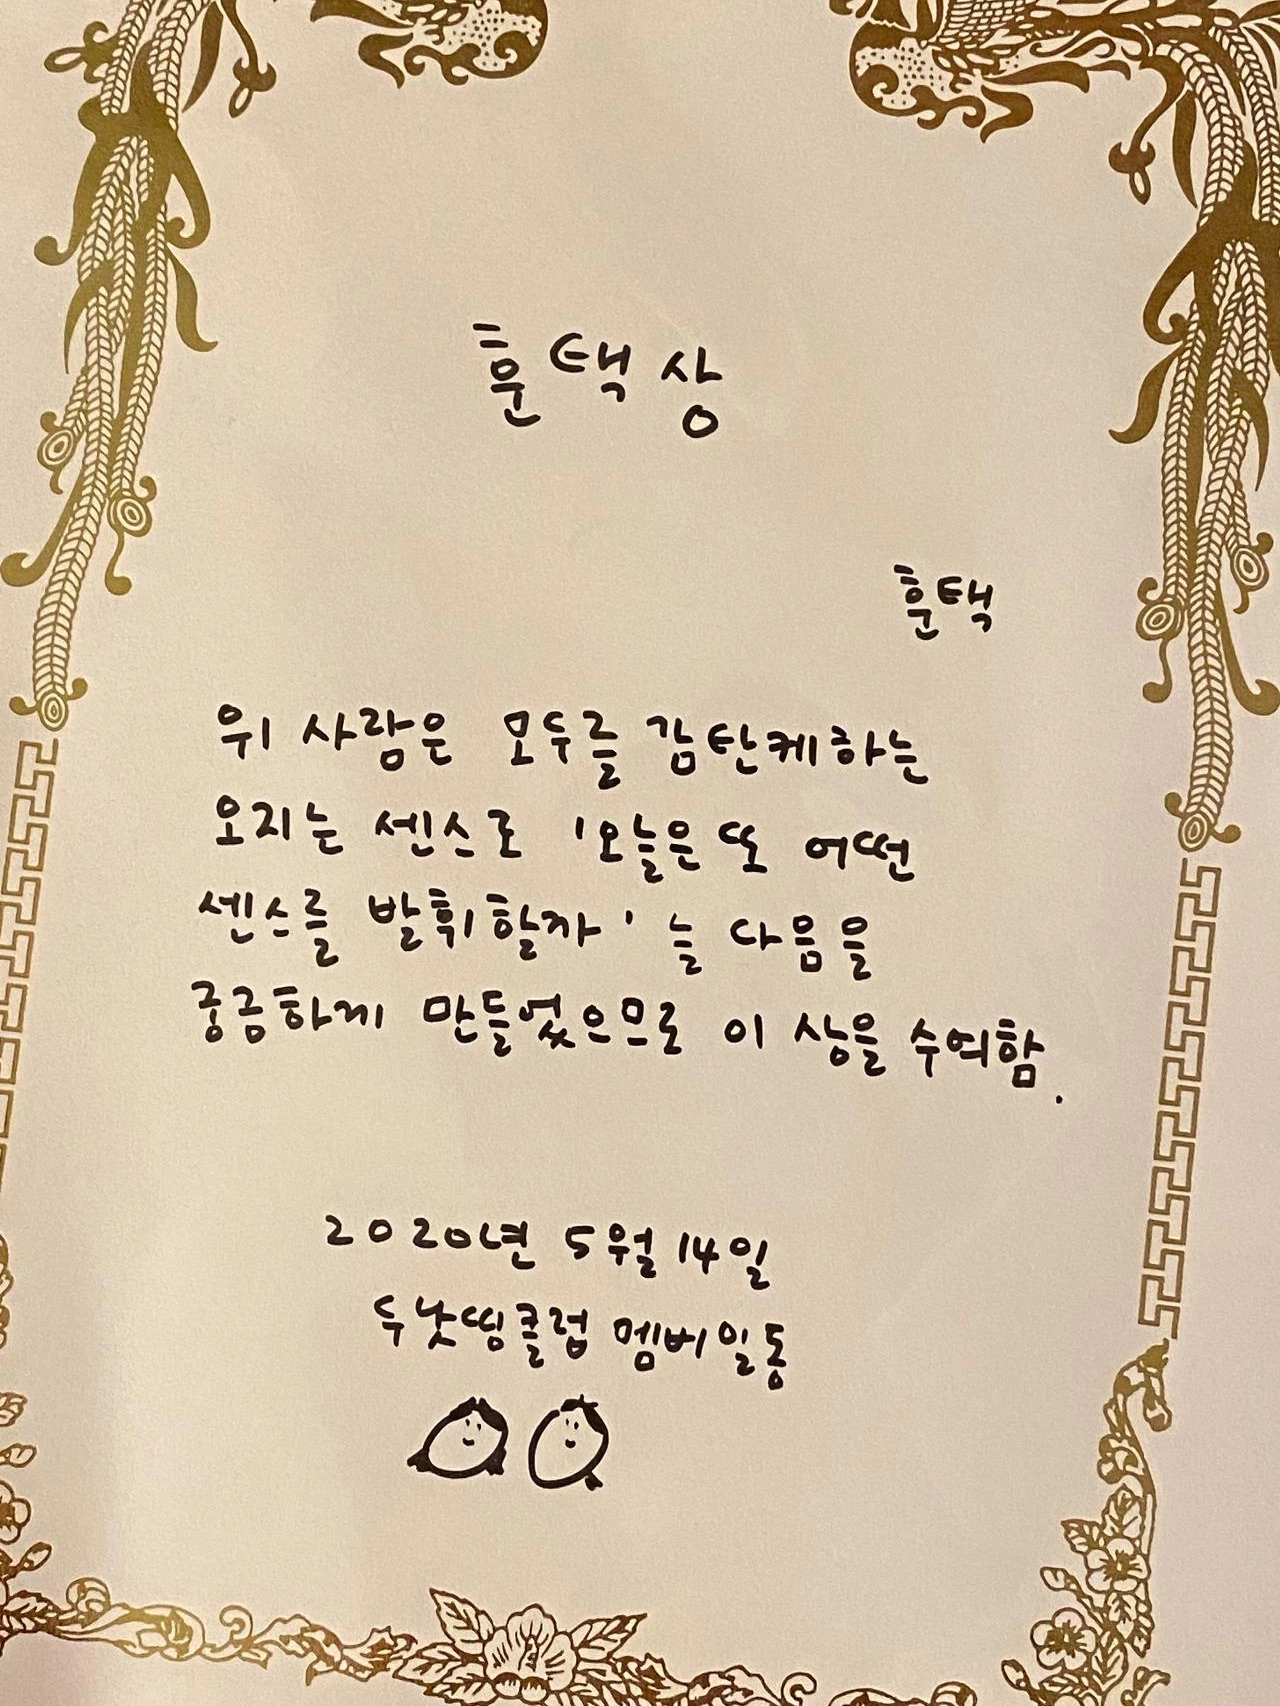 훈택상
훈택
위 사람은 모두를 감탄케하는
오지는 센스로 '오늘은 또 어떤
센스를 발휘할까' 늘 다음을
궁금하게 만들었으므로 이 상을 수여함.
2020년 5월 14일
두낫띵클럽 멤버일동